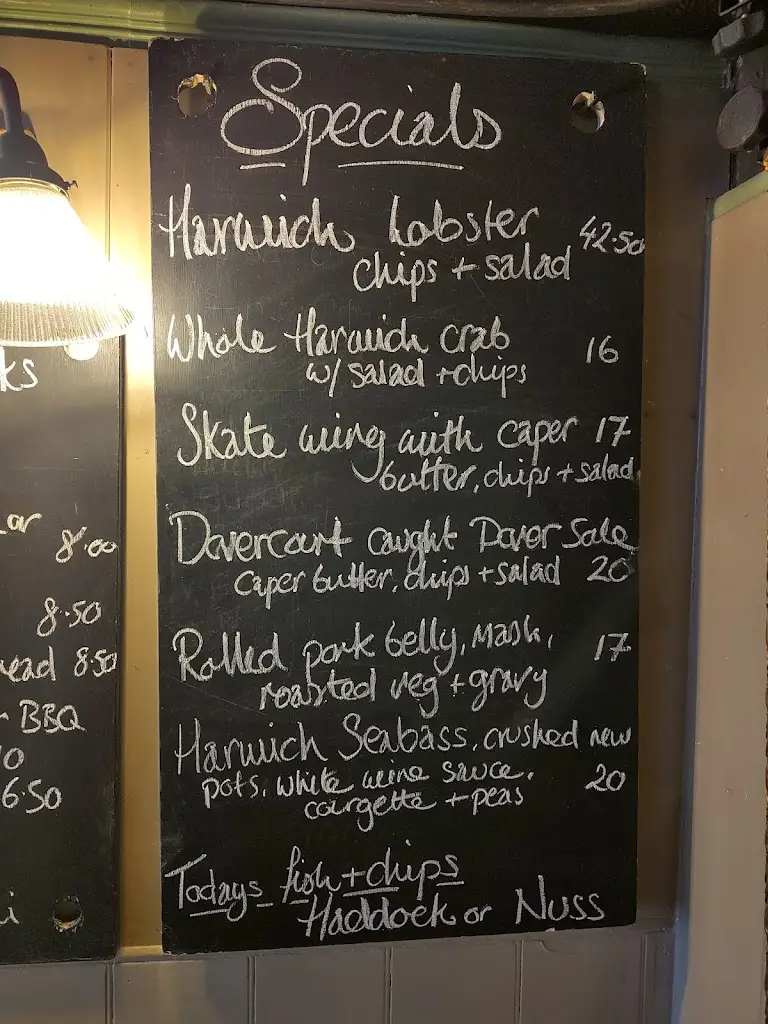 Specials
Harwich Lobster 42.50
chips + salad
Whole Harwich crab 16
w/ salad + chips
Skate wing with caper 17
butter, chips + salad
Dovercourt caught Dover Sole
caper butter, chips + salad 20
Rolled pork belly, mash, 17
roasted veg + gravy
Harwich Seabass, crushed new
pots, white wine sauce, 20
courgette + peas
Todays fish + chips
Haddock or Nuss
ks
or
8.00
8.50
ead 8.50
BBQ
0
6.50
i